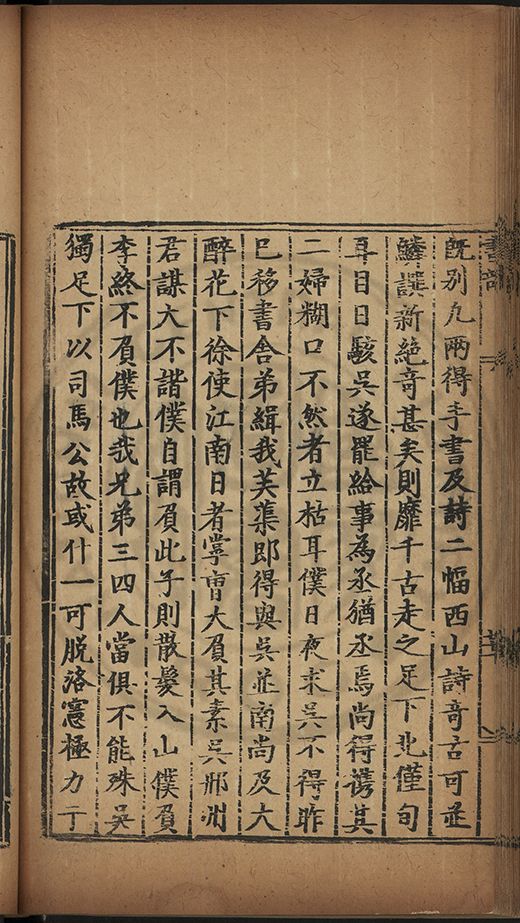 既别凡兩得手書及詩二幅西山詩奇古可並
鱗譔新絶奇甚矣則靡千古走之足下北僅旬
耳目日駭吳遂罷給事為丞猶丞焉尚得携其
二婦糊口不然者立枯耳僕日夜求吳不得昨
已移書舍弟緝我芙蕖即得與吳並南尚及大
醉花下徐使江南日者掌曹大負其素吳邢州
君謀大不諧僕自謂負此子則散髮入山僕負
李終不負僕也哉兄弟三四人當俱不能殊吳
獨足下以司馬公故或什一可脱洛憲極力于